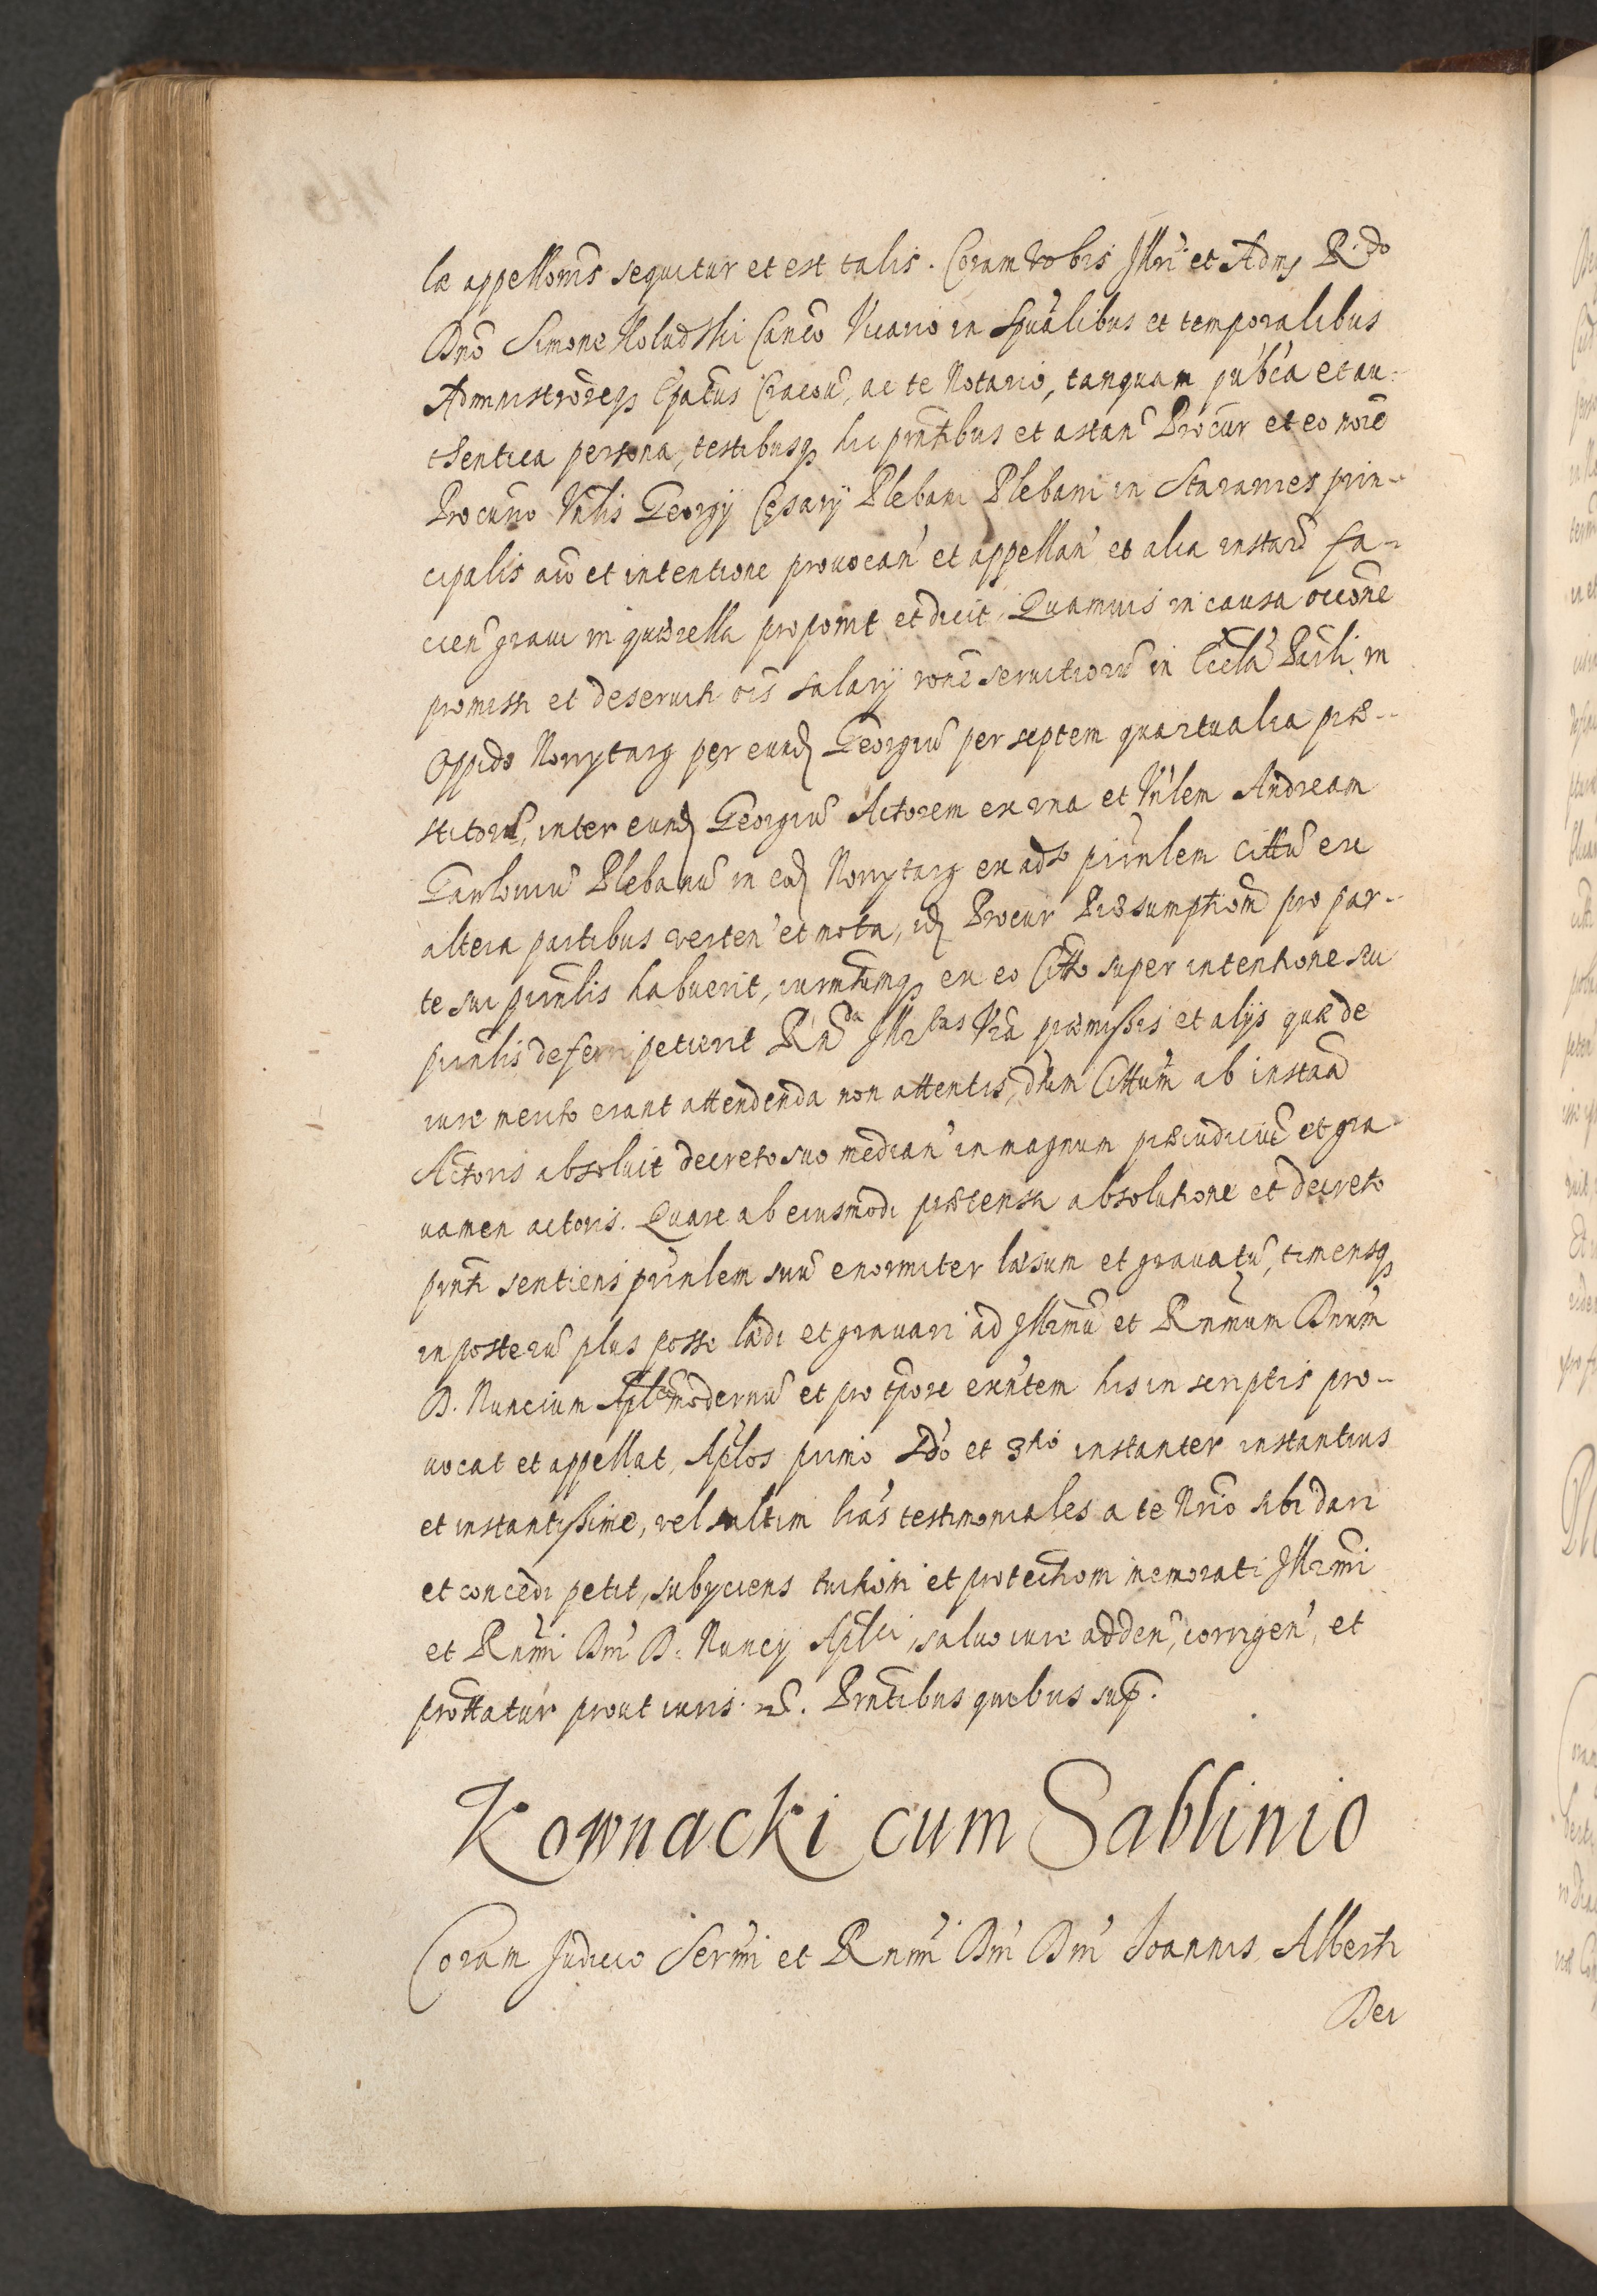 læ appellõnis sequitur et est talis. Coram Vobis Illri et Adm R.do
Dnõ Simone Koludzki Canco Vicario in Spũalibus et temporalibus
Administrõreqꝫ Epãtus Cracoũ, ac te Notario, tanquam pub̃ca et au-
thentica persona, testibusqꝫ hic pñtibus et astan̄ Procur et eo noiẽ
Procurio Vnlis Georgij Cesarij Plebani Plebani in Starauies prin-
cipalis aiõ et intentione prouocan̄ et appellan̄ et alia instañ fa-
cien̄ graui in quærella proponit et dicit, Quamuis in causa occõne
promissi et deseruiti ois salarij rõne seruitiorũ in Eccla Parli in
Oppido Nowytarg per eund Georgiũ per septem quartualia præ-
stitorũ, inter eund Georgiũ Actorem ex vna et Vnlem Andream
Gawlouiũ Plebanũ in eod Nowytarg ex adso prinlem cittũ ex
altera partibus verten̄ et mota, id Procur Præsumptiõm pro par-
te sui prinlis habuerit, iurmtumqꝫ ex eo Citto super intentione sui
prinlis deferri petierit Rnda Illrtas Vra præmissis et alijs quæ de
iure merito erant attendenda non attentis, dtum Cittum ab instaã
Actoris absoluit decreto suo median̄ in magnum præiudiciũ et gra-
uamen actoris. Quare ab eiusmodi prætensa absolutione et decreto
pñti sentiens prinlem suũ enormiter læsum et grauatũ, timensqꝫ
in posterũ plus posse lædi et grauari ad Illrmũ et Rnmum Dnum
D. Nuncium Aplicũ modernũ et pro tpore exñtem his in scriptis pro-
uocat et appellat, Aplos primo 2do et 3tio instanter instantius
et instantissime, vel saltim lrãs testimoniales a te Nrio sibi dari
et concedi petit, subijciens tuitioni et protectiom memorati Illrmi
et Rnmi Dni D. Nuncij Aplici, saluo iure adden̄, corrigen̄, et
prottatur prout iuris. rẽ. Pñtibus quibus sup̃.
Kownacki cum Sablinio
Coram Judicio Sermi et Rnmi Dni Dni Joannis Alberti
Dei